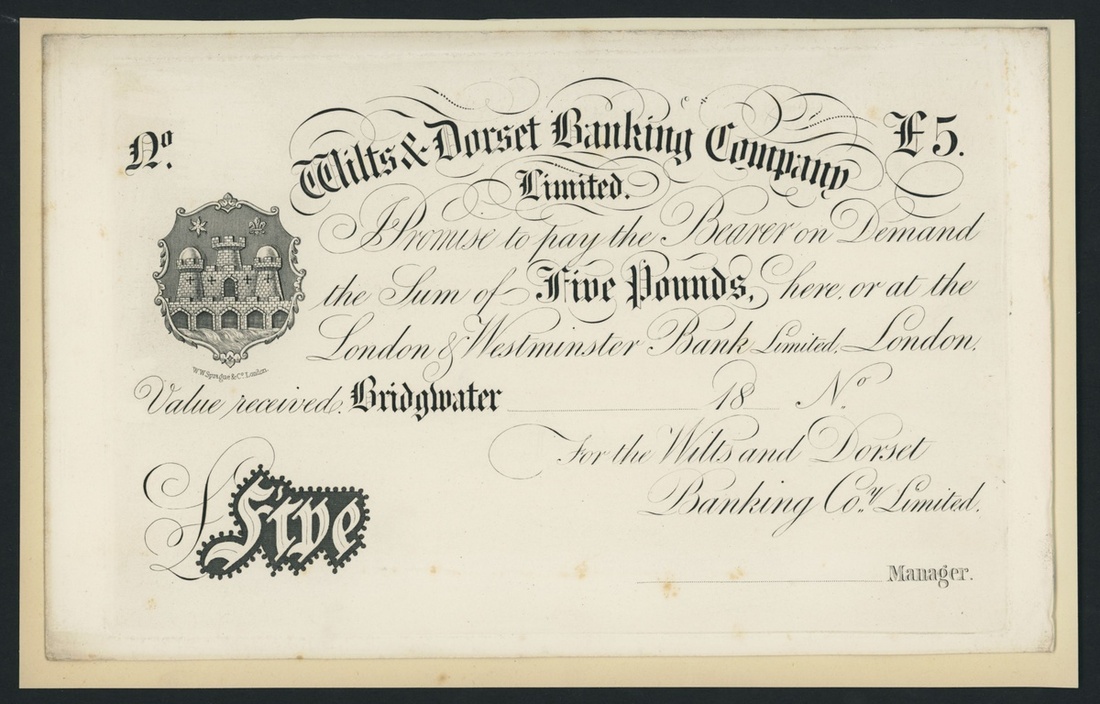 Nº.
£5.
Wilts & Dorset Banking Company
Limited.
I Promise to pay the Bearer on Demand
the Sum of Five Pounds, here, or at the
London & Westminster Bank Limited, London.
W.W. Sprague & Co. London.
Value received. Bridgwater 18 Nº.
For the Wilts and Dorset
Banking Co.y Limited.
£ Five
Manager.